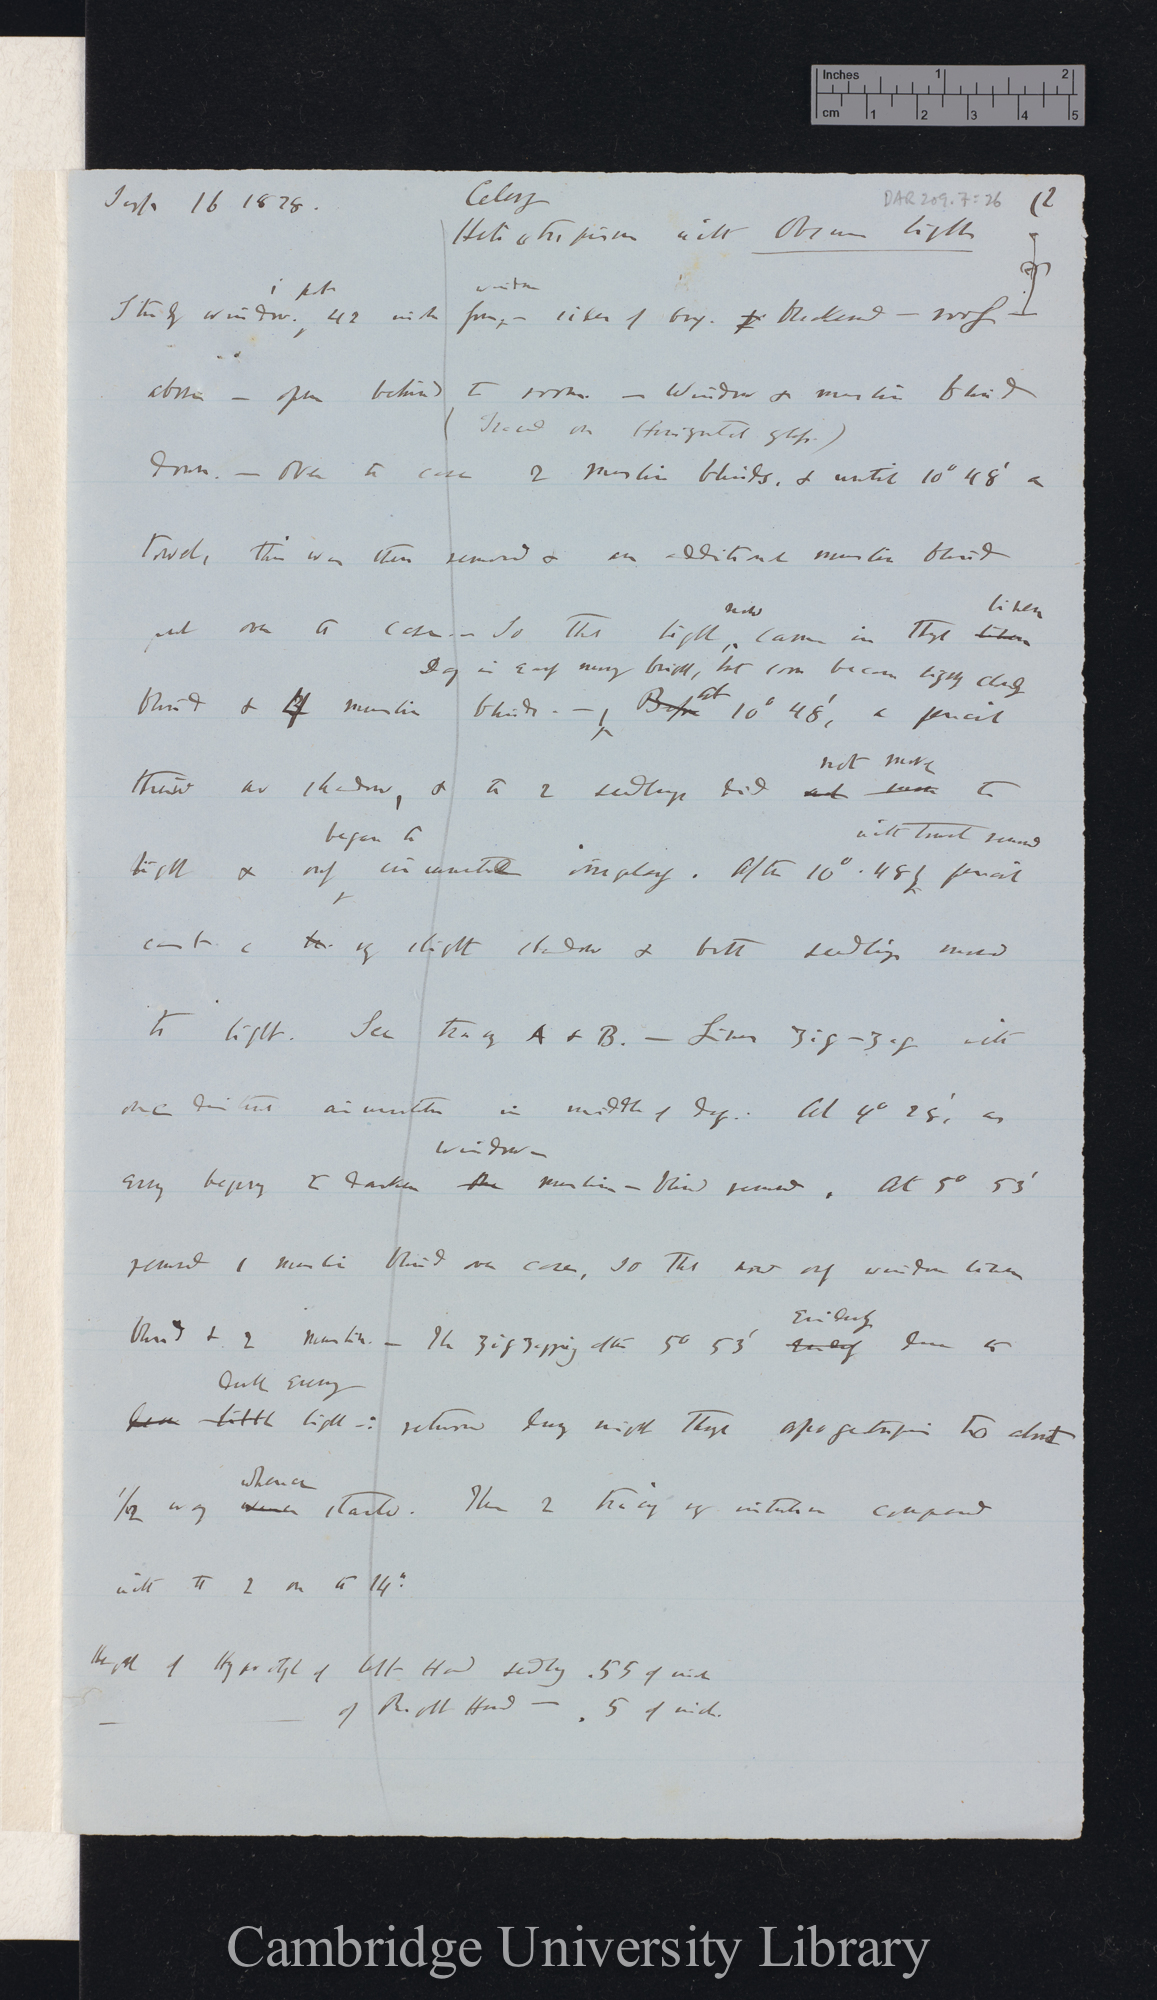 Inches 1 2
cm 1 2 3 4 5
Sept 16 1878. Celery DAR 209.7:26 (2
Heliotropism with Obscure light
i pots window
Study window. 42 inch from, — sides of box. blackened — roof —
above — open behind to room. — Window & muslin blind
(Traced on Horizontal glass.)
down. — Over the case 2 muslin blinds, & until 10° 48' a
towel, this was then removed & an additional muslin blind
now linen
put over the case. — So that light, came in thro' linen
Day in early morning bright, but soon became cloudy
blind & 4 muslin blinds. — Before at 10° 48', a pencil
not move
threw no shadow, & the 2 seedlings did not move to
began to
light & only circumnutated . After 10°. 48' pencil
cast a slight shadow & both seedlings moved
to light. See tracing A & B. — Lines zig-zag with
one circumnutation in middle of day. At 4° 28', as
window
evening began to darken the muslin-blind removed. At 5° 53'
removed 1 muslin blind over case, so that now only window linen
Evidently
blind & 2 muslin. — The zigzagging after 5° 53' due to
dull evening
little light —: returned during night through apogeotropism to about
whence
1/2 way whence started. These 2 tracings compared
with the 2 on the 14th
Height of Hypocotyl of left Hand seedling .55 of inch
of Right Hand — .5 of inch.
Cambridge University Library